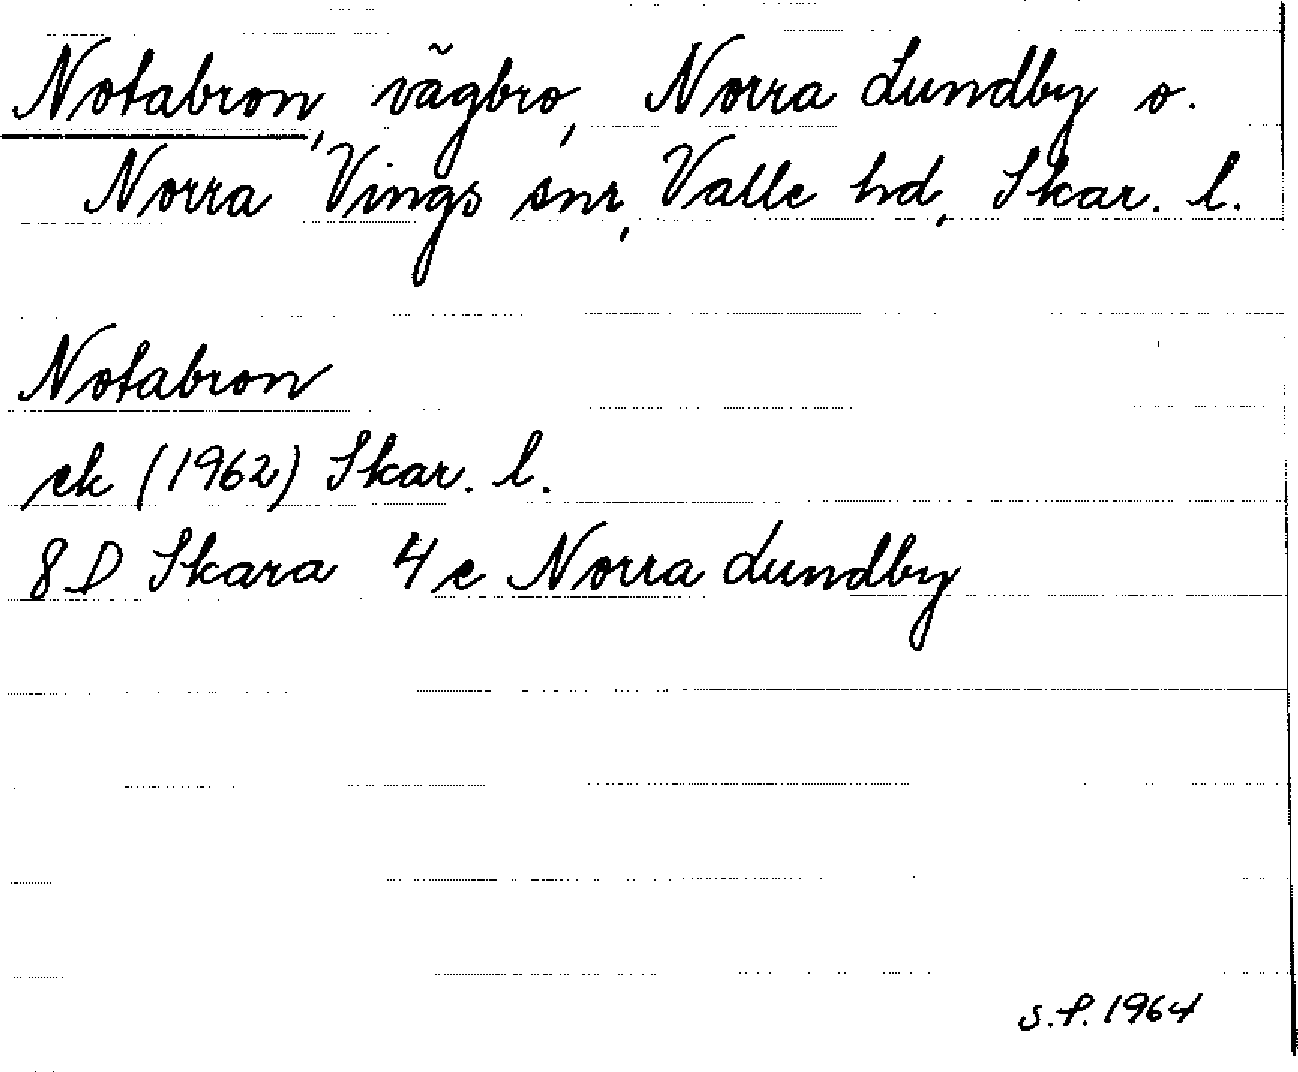 Notabron, vägbro, Norra Lundby o.
Norra Vings snr, Valle hd, Skar. l.
Notabron
ek (1962) Skar. l.
8 D Skara 4 e Norra Lundby
S.P. 1964